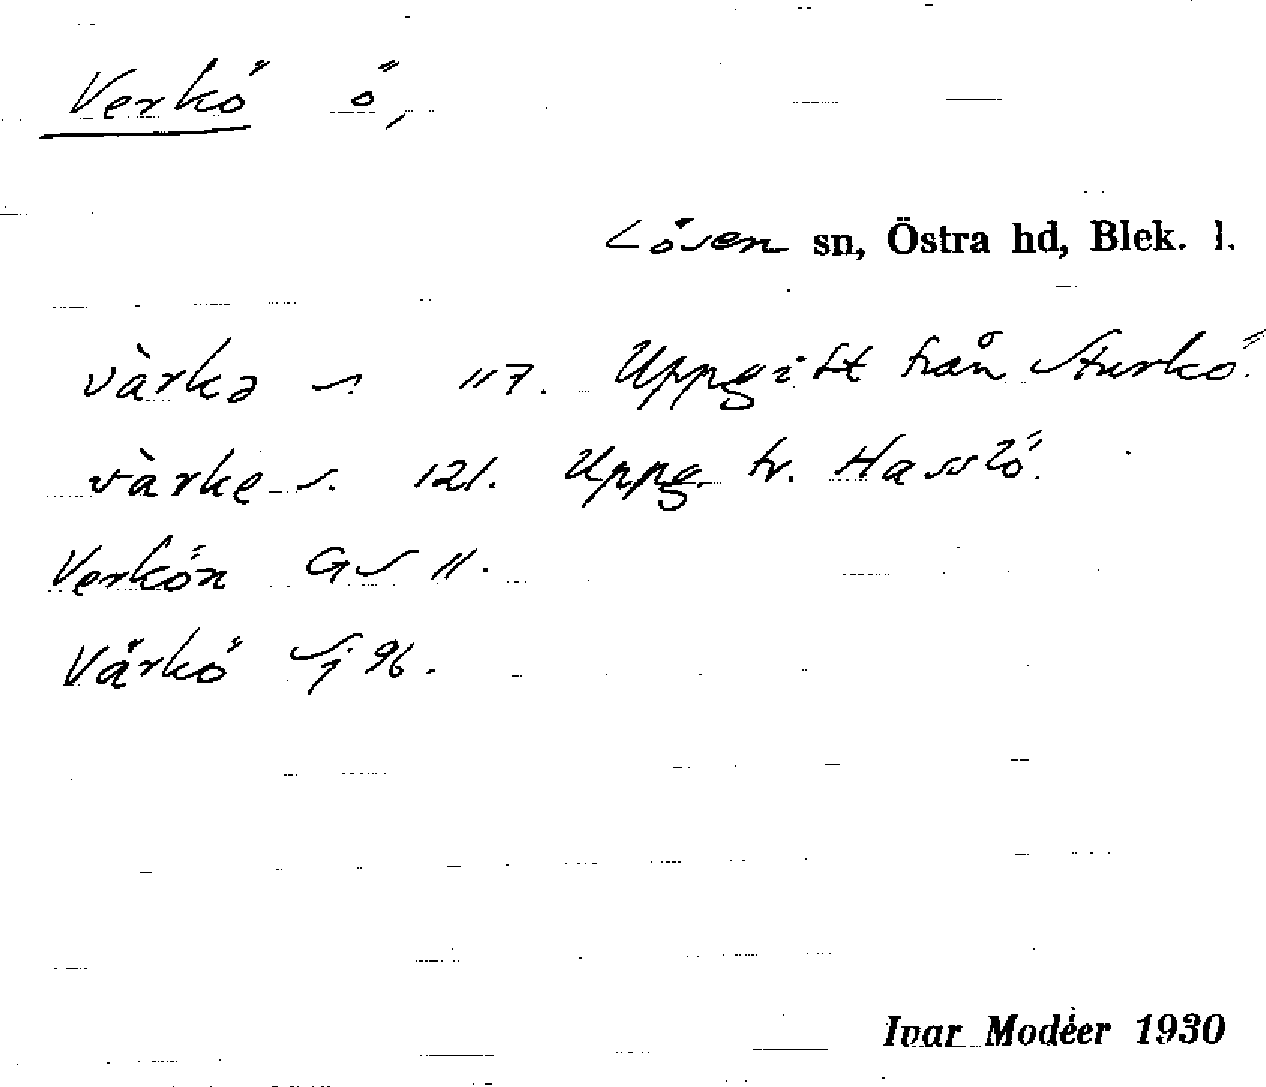 Verkö ö,
Lösen sn, Östra hd, Blek. l.
vàrkə s. 117. Uppgift från Sturkö.
vàrke s. 121. Uppg. fr. Hasslö.
Verkön GS 11.
Värkö Sj 96.
Ivar Modéer 1930